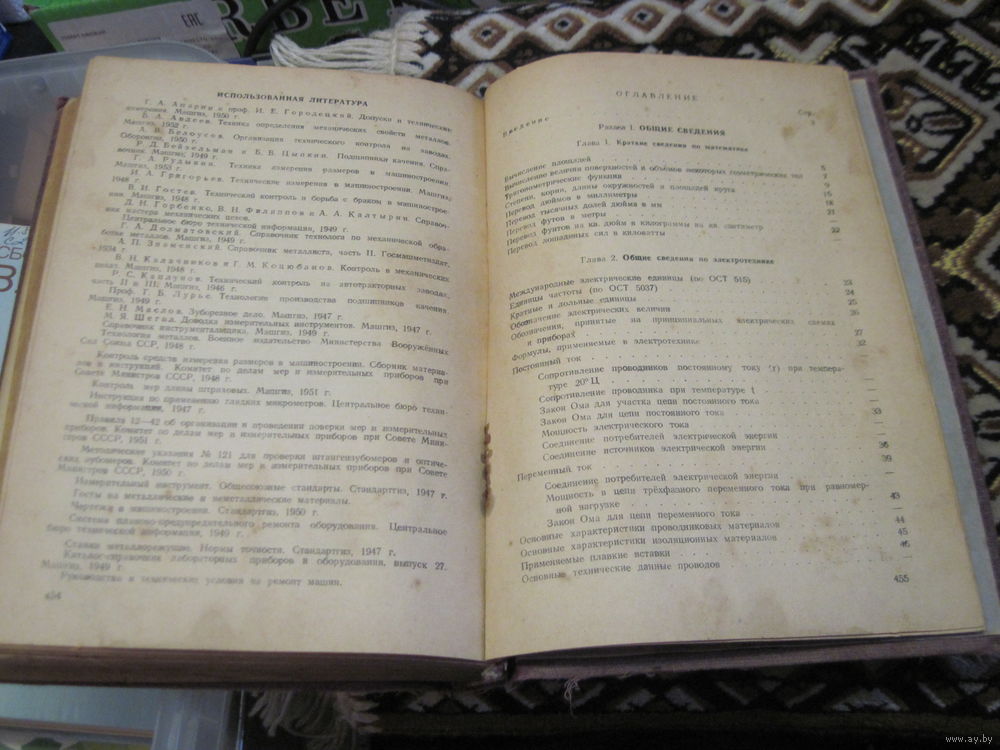 ИСПОЛЬЗОВАННАЯ ЛИТЕРАТУРА
Г. А. Апарин и проф. И. Е. Городецкий. Допуски и технические
измерения. Машгиз, 1950 г.
Б. А. Авдеев. Техника определения механических свойств металлов.
Машгиз, 1952 г.
А. В. Белоусов. Организация технического контроля на заводах.
Оборонгиз, 1950 г.
Р. Д. Бейзельман и Б. В. Цыпкин. Подшипники качения. Спра-
вочник. Машгиз, 1949 г.
Г. А. Рудыкин. Техника измерения размеров в машиностроении.
Машгиз, 1953 г.
И. А. Григорьев. Технические измерения в машиностроении. Машгиз,
1948 г.
В. И. Гостев. Технический контроль и борьба с браком в машиностро-
ении. Машгиз, 1948 г.
Д. Н. Горбенко, В. Н. Филиппов и А. А. Калтырин. Справоч-
ник мастера механических цехов.
Центральное бюро технической информации, 1949 г.
Г. А. Долматовский. Справочник технолога по механической обра-
ботке металлов. Машгиз, 1949 г.
А. П. Знаменский. Справочник металлиста, часть II. Госмашметиздат,
1934 г.
В. Н. Калачников и Г. М. Коцюбанов. Контроль в механических
цехах. Машгиз, 1948 г.
Р. С. Каплунов. Технический контроль на автотракторных заводах,
часть II и III. Машгиз, 1946 г.
Проф. Г. Б. Лурье. Технология производства подшипников качения.
Машгиз, 1949 г.
Е. Н. Маслов. Зуборезное дело. Машгиз, 1947 г.
М. Я. Шегал. Доводка измерительных инструментов. Машгиз, 1946 г.
Справочник инструментальщика. Машгиз, 1949 г.
Технология металлов. Военное издательство Министерства Вооружённых
Сил Союза ССР, 1948 г.
Контроль средств измерения размеров в машиностроении. Сборник материа-
лов и инструкций. Комитет по делам мер и измерительных приборов при
Совете Министров СССР, 1948 г.
Контроль мер длины штриховых. Машгиз, 1951 г.
Инструкция по применению гладких микрометров. Центральное бюро техни-
ческой информации, 1947 г.
Правила 12—42 об организации и проведении поверки мер и измерительных
приборов. Комитет по делам мер и измерительных приборов при Совете Мини-
стров СССР, 1951 г.
Методические указания № 121 для проверки штангензубомеров и оптиче-
ских зубомеров. Комитет по делам мер и измерительных приборов при Совете
Министров СССР, 1950 г.
Измерительный инструмент. Общесоюзные стандарты. Стандартгиз, 1947 г.
Госты на металлические и неметаллические материалы.
Чертежи в машиностроении. Стандартгиз, 1950 г.
Система планово-предупредительного ремонта оборудования. Центральное
бюро технической информации, 1949 г.
Станки металлорежущие. Нормы точности. Стандартгиз, 1947 г.
Каталог-справочник лабораторных приборов и оборудования, выпуск 27.
Машгиз, 1949 г.
Руководства и технические условия на ремонт машин.
454
ОГЛАВЛЕНИЕ
Стр.
Введение 3
Раздел I. ОБЩИЕ СВЕДЕНИЯ
Глава 1. Краткие сведения по математике
Вычисление площадей 5
Вычисление величин поверхностей и объёмов некоторых геометрических тел 7
Тригонометрические функции 9
Степени, корни, длины окружностей и площадей круга 15
Перевод дюймов в миллиметры 18
Перевод тысячных долей дюйма в мм 21
Перевод футов в метры —
Перевод фунтов на кв. дюйм в килограммы на кв. сантиметр 22
Перевод лошадиных сил в киловатты —
Глава 2. Общие сведения по электротехнике
Международные электрические единицы (по ОСТ 515) 23
Единицы частоты (по ОСТ 5037) 24
Кратные и дольные единицы 25
Обозначение электрических величин 26
Обозначения, принятые на принципиальных электрических схемах
и приборах 27
Формулы, применяемые в электротехнике 32
Постоянный ток —
Сопротивление проводников постоянному току (r) при темпера-
туре 20° Ц —
Сопротивление проводника при температуре t —
Закон Ома для участка цепи постоянного тока —
Закон Ома для цепи постоянного тока 33
Мощность электрического тока —
Соединение потребителей электрической энергии —
Соединение источников электрической энергии 36
Переменный ток 39
Соединение потребителей электрической энергии —
Мощность в цепи трёхфазного переменного тока при равномер-
ной нагрузке 43
Закон Ома для цепи переменного тока —
Основные характеристики проводниковых материалов 44
Основные характеристики изоляционных материалов 45
Применяемые плавкие вставки 46
Основные технические данные проводов
455
EAC
www.ay.by